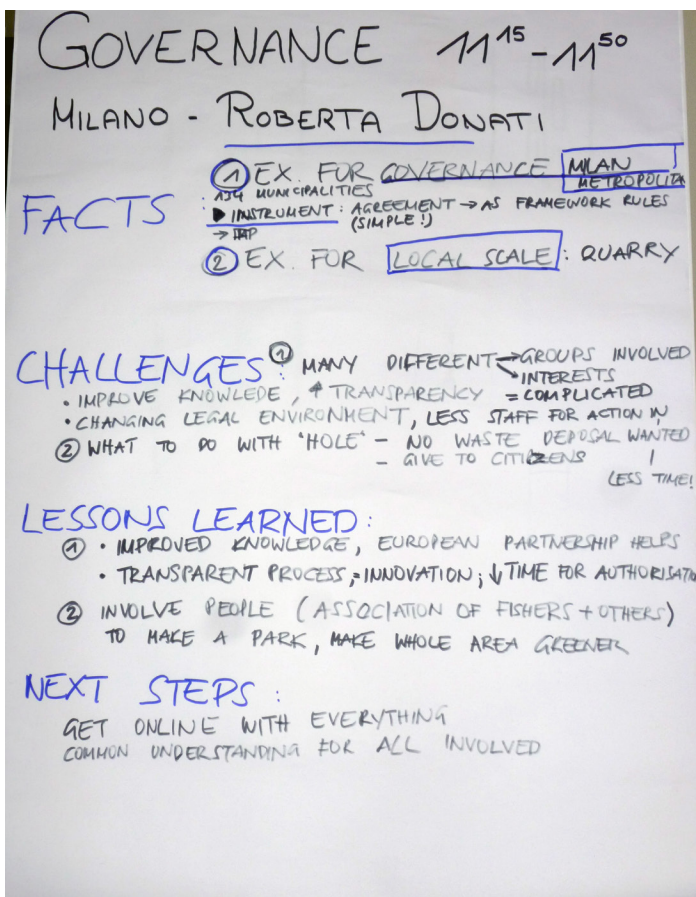 GOVERNANCE 11¹⁵ - 11⁵⁰
MILANO - ROBERTA DONATI
① EX. FOR GOVERNANCE MILAN
METROPOLITA
134 MUNICIPALITIES
FACTS : ▶ INSTRUMENT : AGREEMENT → AS FRAMEWORK RULES
(SIMPLE!)
→
② EX. FOR LOCAL SCALE : QUARRY
CHALLENGES : ① MANY DIFFERENT → GROUPS INVOLVED
→ INTERESTS
• IMPROVE KNOWLEDE, ↑ TRANSPARENCY = COMPLICATED
• CHANGING LEGAL ENVIRONMENT, LESS STAFF FOR ACTION IN
② WHAT TO DO WITH 'HOLE' - NO WASTE DEPOSAL WANTED
- GIVE TO CITIZENS
LESS TIME!
LESSONS LEARNED :
① • IMPROVED KNOWLEDGE, EUROPEAN PARTNERSHIP HELPS
• TRANSPARENT PROCESS, = INNOVATION ; ↓ TIME FOR AUTHORISATIO
② INVOLVE PEOPLE (ASSOCIATION OF FISHERS + OTHERS)
TO MAKE A PARK, MAKE WHOLE AREA GREENER
NEXT STEPS :
GET ONLINE WITH EVERYTHING
COMMON UNDERSTANDING FOR ALL INVOLVED